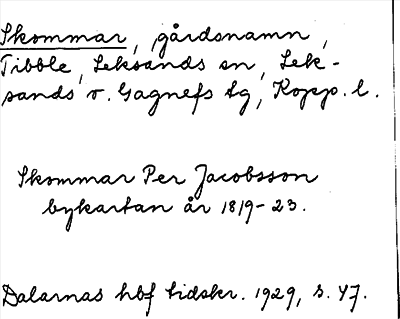 Skommar, gårdsnamn,
Tibble, Leksands sn, Lek-
sands o. Gagnefs tg, Kopp. l.
Skommar Per Jacobsson
bykartan år 1819-23.
Dalarnas hbf tidskr. 1929, s. 47.